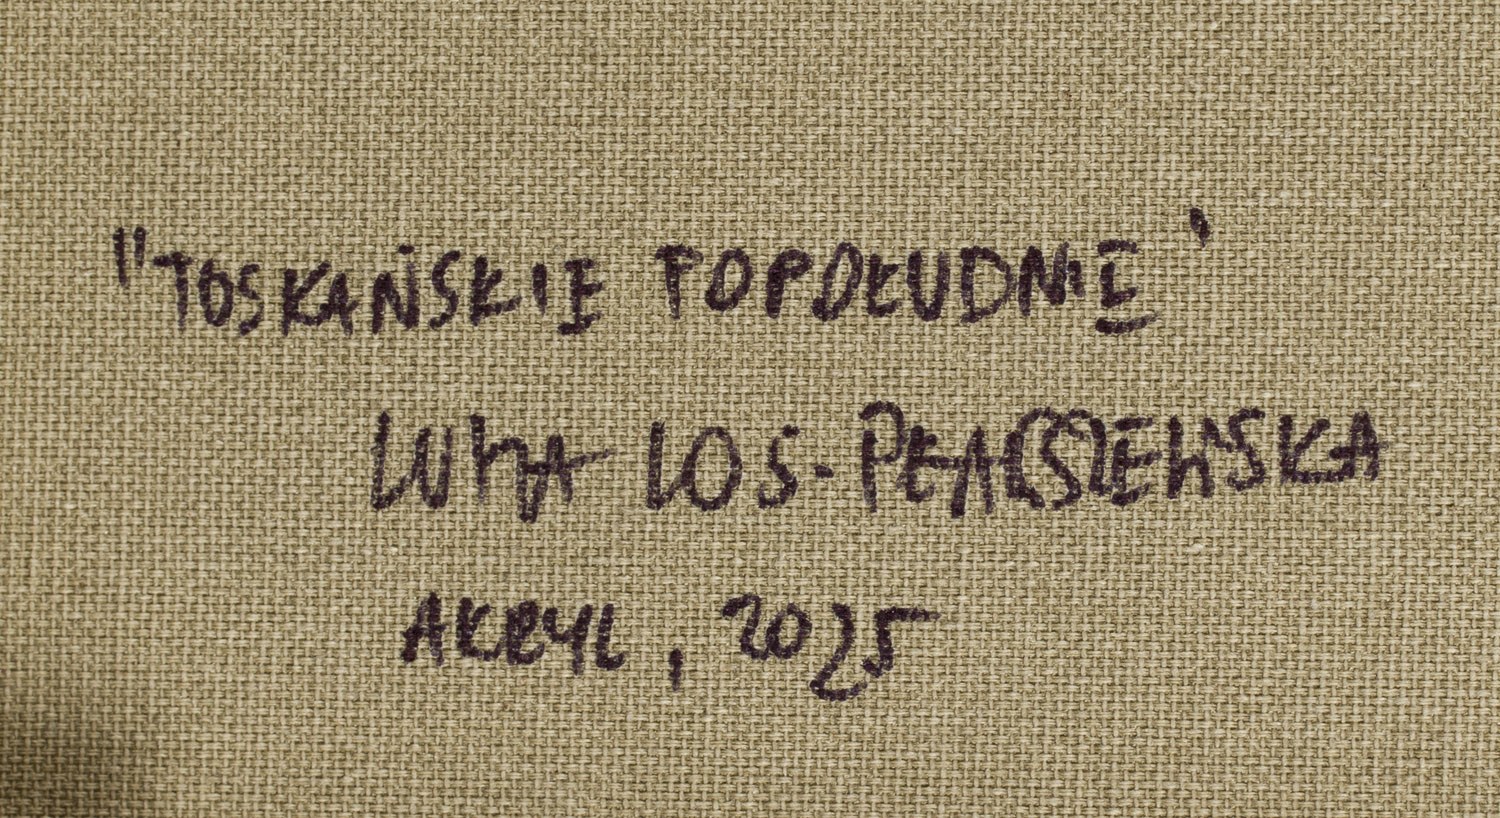 "TOSKAŃSKIE POPOŁUDNIE'
LUIZA LOS-PŁAWSZEWSKA
AKRYL, 2025